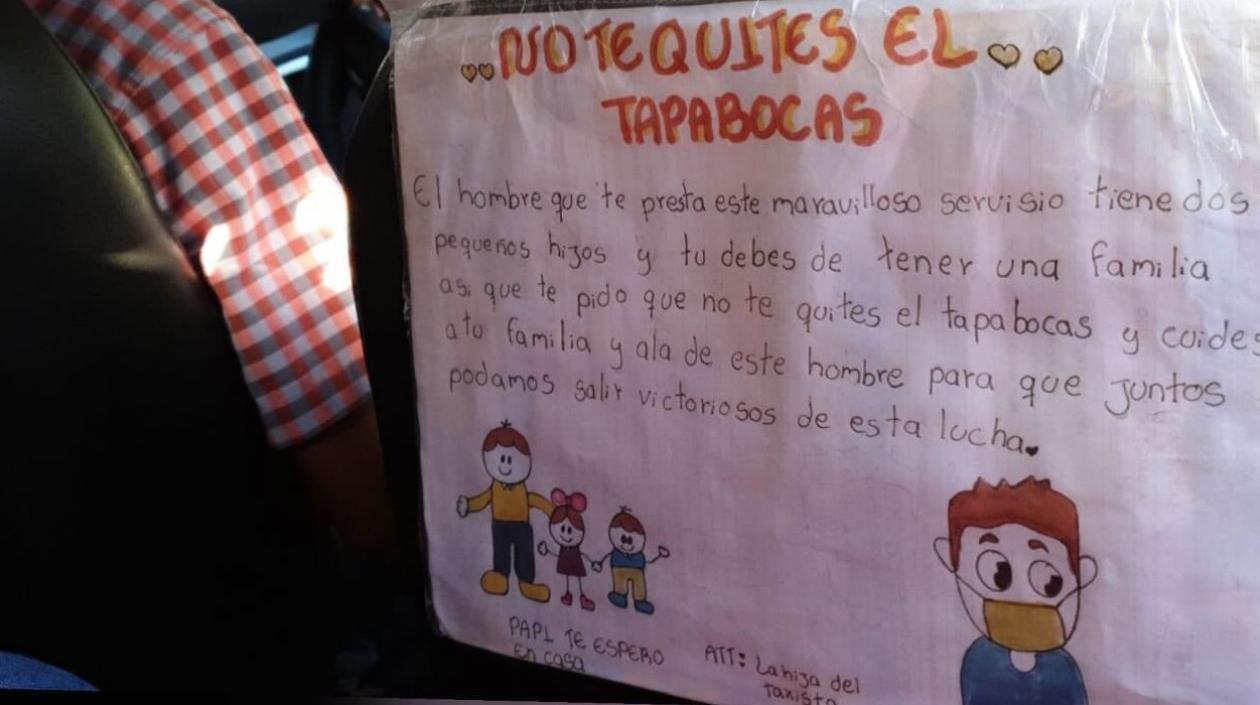 NO TE QUITES EL
TAPABOCAS
El hombre que te presta este maravilloso servisio tiene dos
pequeños hijos y tu debes de tener una familia
asi que te pido que no te quites el tapabocas y cuides
a tu familia y ala de este hombre para que juntos
podamos salir victoriosos de esta lucha.
PAPI TE ESPERO
En casa
ATT: La hija del
taxista